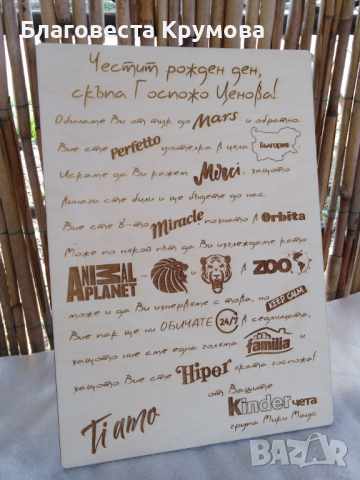 Благовеста Крумова
Честит рожден ден,
скъпа Госпожо Ценова!
Обичаме Ви от тук до Mars и обратно.
Вие сте Perfetto учителка в цяла България
Искаме да Ви кажем Merci, защото
винаги сте били и ще бъдете до нас.
Вие сте 8-то Miracle, познато в Orbita
Може по някой път да Ви изглеждаме като
ANIMAL PLANET - и в ZOO,
може и да Ви изнервяме с това, но KEEP CALM.
Вие пак ще ни ОБИЧАТЕ 24/7 в седмицата,
защото ние сме една голяма familia и
защото Вие сте Hiper ската госпожа!
от Вашите
Kinder чета
група Мики Маус
Ti amo
BAZAR